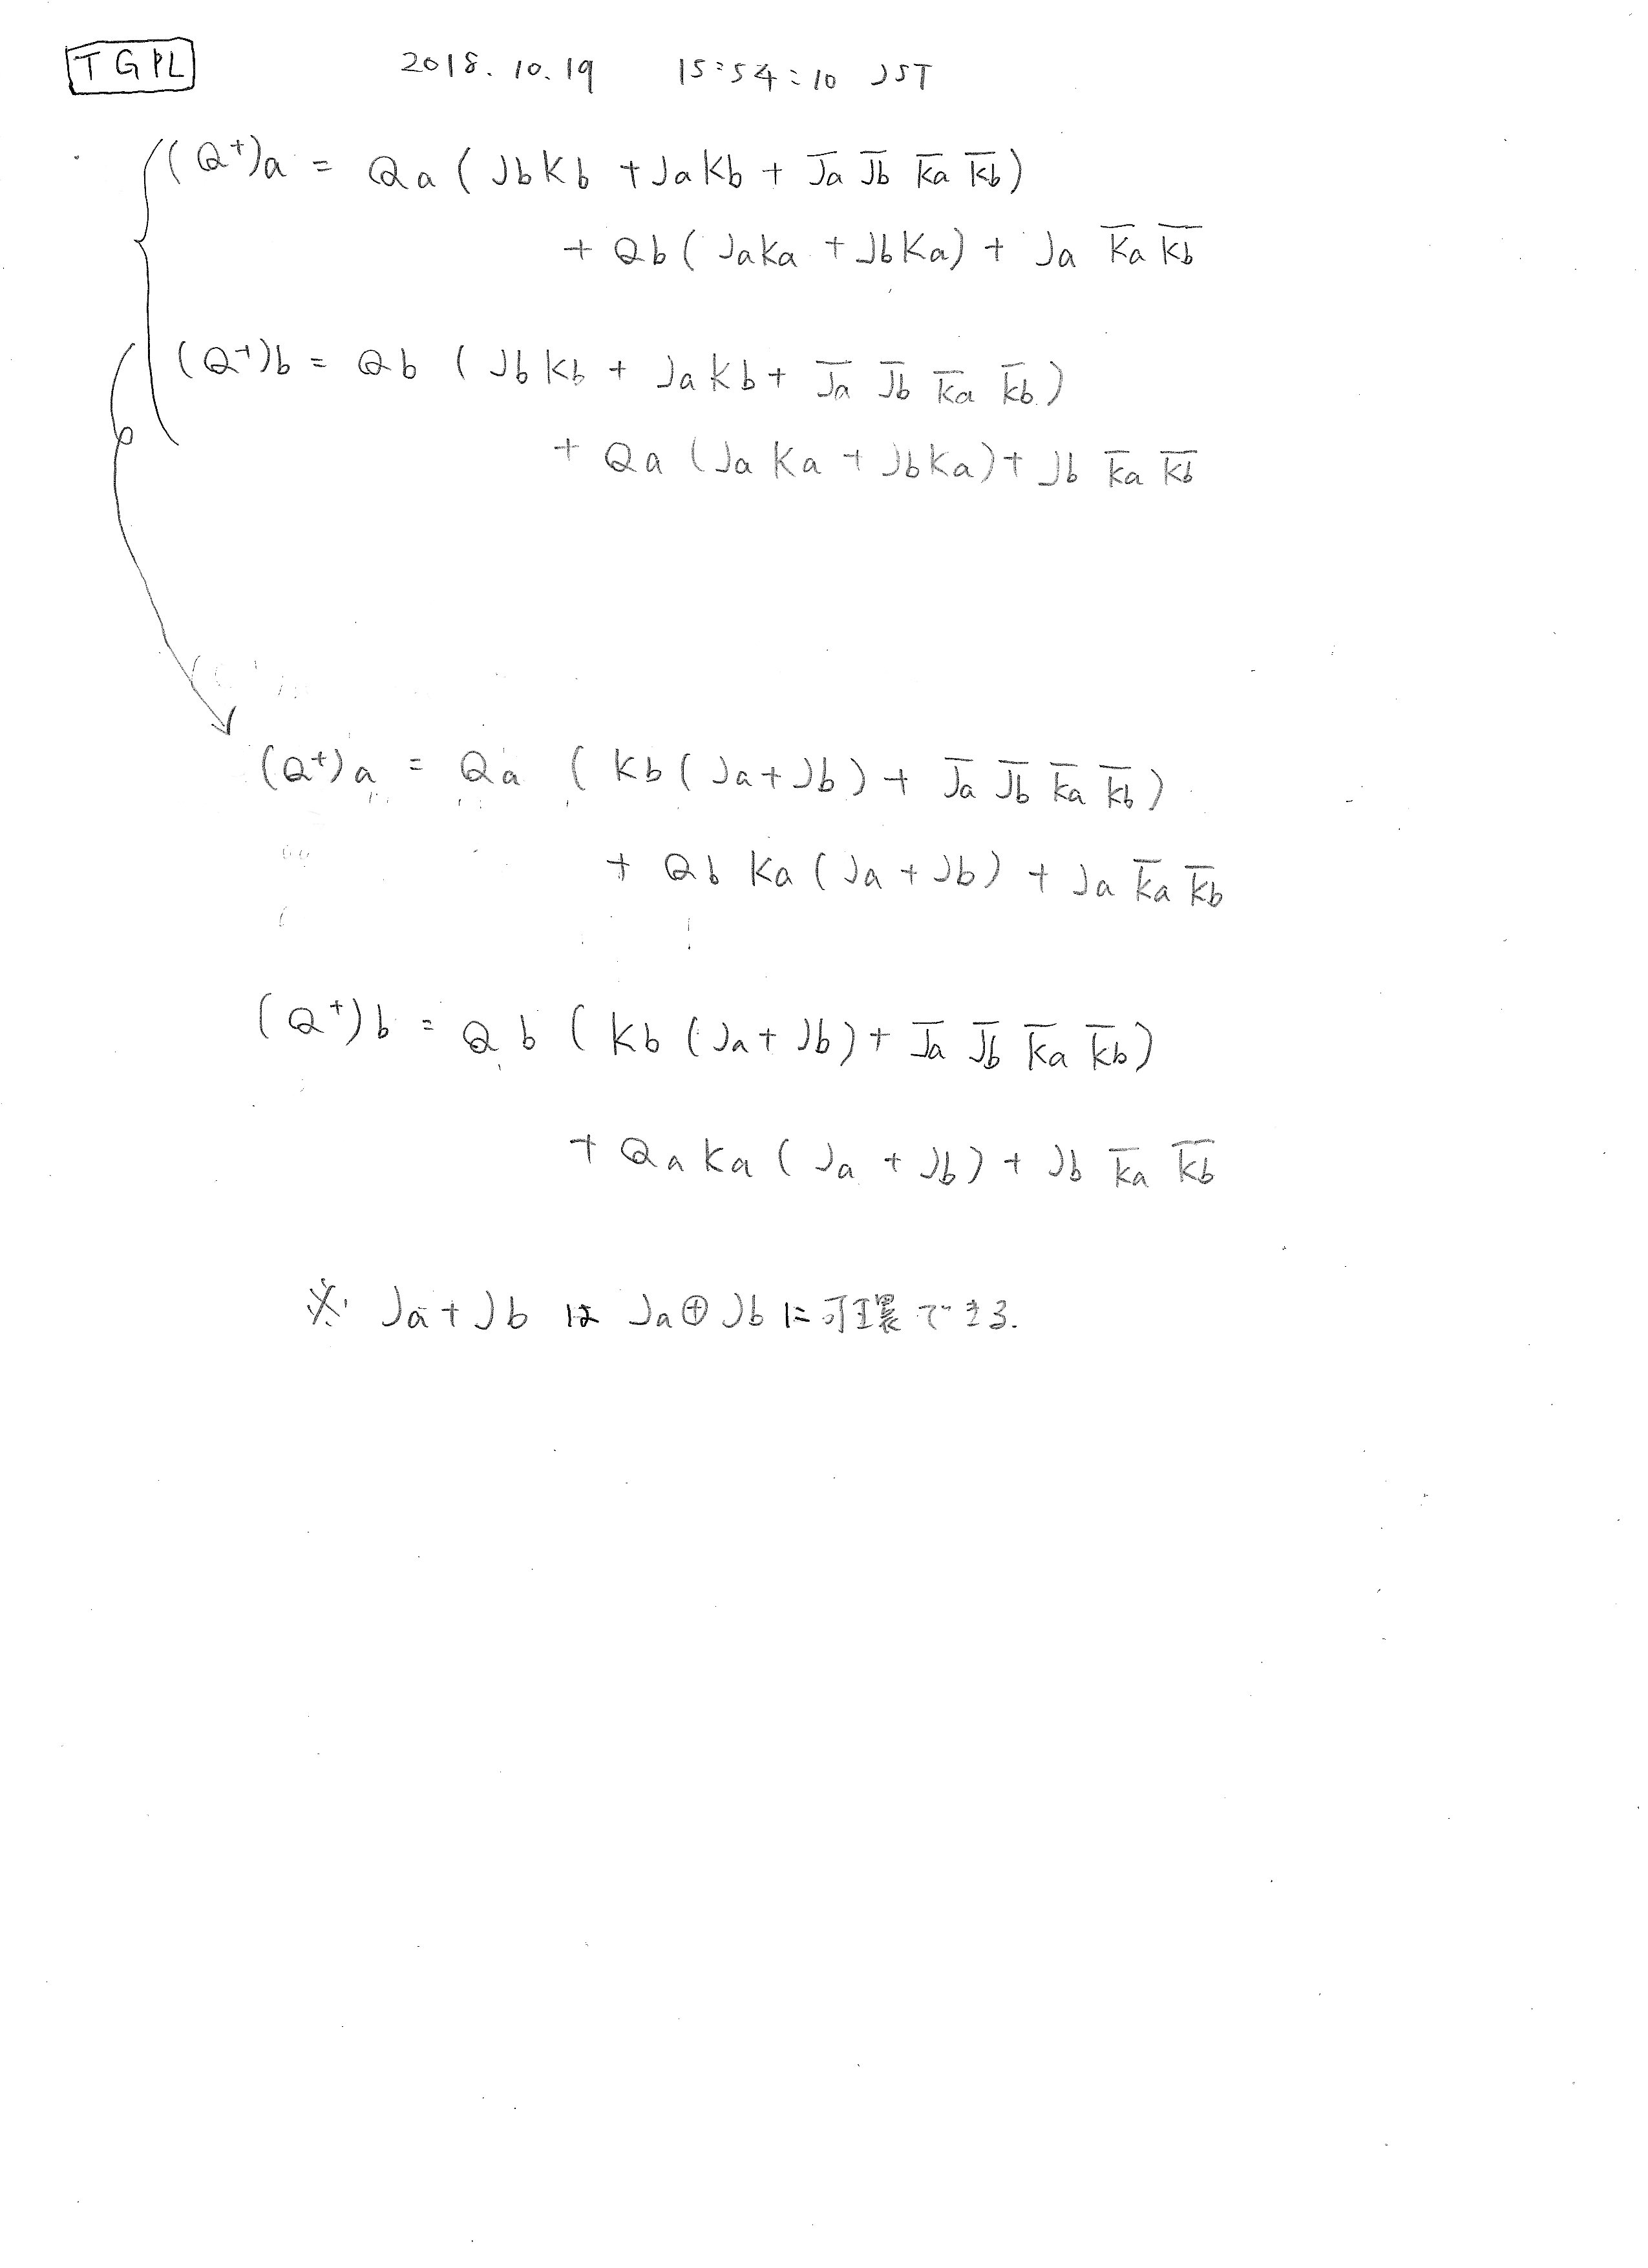 TGPL 2018.10.19 15:54:10 JST
(Q⁺)a = Qa (JbKb + JaKb + J̅a J̅b K̅a K̅b)
+ Qb (JaKa + JbKa) + Ja K̅a K̅b
(Q⁺)b = Qb (JbKb + JaKb + J̅a J̅b K̅a K̅b)
+ Qa (JaKa + JbKa) + Jb K̅a K̅b
(Q⁺)a = Qa (Kb (Ja + Jb) + J̅a J̅b K̅a K̅b)
+ Qb Ka (Ja + Jb) + Ja K̅a K̅b
(Q⁺)b = Qb (Kb (Ja + Jb) + J̅a J̅b K̅a K̅b)
+ Qa Ka (Ja + Jb) + Jb K̅a K̅b
※ Ja + Jb は Ja ⊕ Jb に できる.